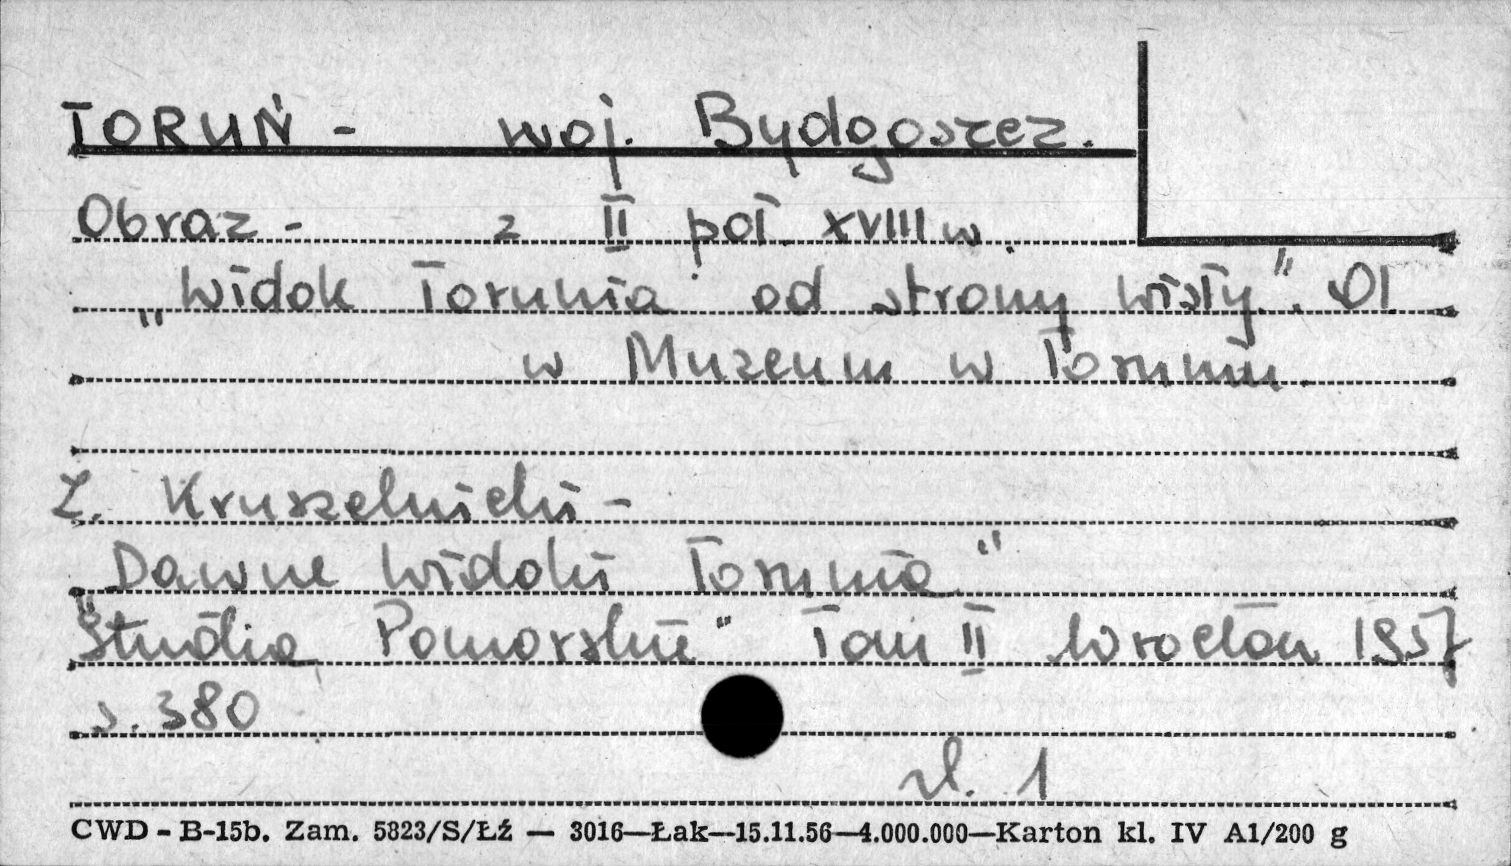 TORUŃ - woj. Bydgoszcz.
Obraz - z II poł. XVIII w.
„Widok Torunia od strony Wisły". Ol.
w Muzeum w Toruniu.
Z. Kruszelnicki -
„Dawne widoki Torunia"
„Studia Pomorskie" Tom II Wrocław 1957
s. 380
il. 1
CWD - B-15b. Zam. 5823/S/Łź — 3016—Łak—15.11.56—4.000.000—Karton kl. IV A1/200 g